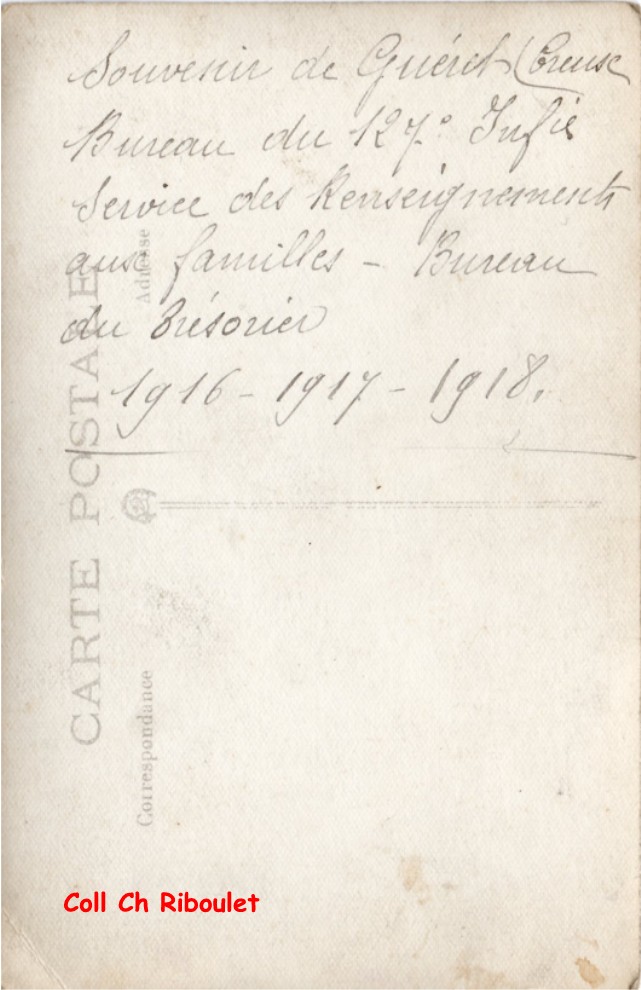 Souvenir de Guéret (Creuse
Bureau du 127e Infie
Service des Renseignements
aux familles - Bureau
du Trésorier
1916 - 1917 - 1918.
CARTE POSTALE
Adresse
Correspondance
Coll Ch Riboulet